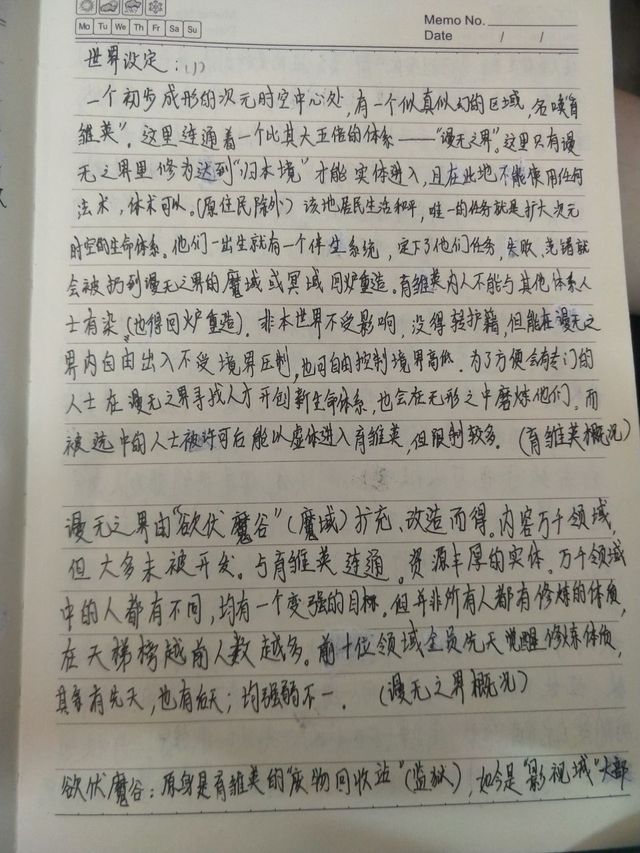 Memo No.
Mo Tu We Th Fr Sa Su
Date / /
世界设定：(1)
一个初步成形的次元时空中心处，有一个似真似幻的区域，名唤“育
雏英”。这里连通着一个比其大五倍的体系——“谩无之界”。这里只有谩
无之界里修为达到“归本境”才能实体进入，且在此地不能使用任何
法术，体术可以。（原住民除外）该地居民生活和平，唯一的任务就是扩大次元
时空的生命体系。他们一出生就有一个伴生系统，定下了他们任务，失败、完错就
会被扔到谩无之界的魔域或冥域回炉重造。育雏英内人不能与其他体系人
士有染（也得回炉重造）。非本世界不受影响，没得转护籍，但能在谩无之
界内自由出入不受境界压制，也可自由控制境界高低。为了方便会有专门的
人士在谩无之界寻找人才开创新生命体系，也会在无形之中磨炼他们。而
被选中的人士被许可后能以虚体进入育雏英，但限制较多。（育雏英概况）
谩无之界由“欲伏魔谷”（魔域）扩充、改造而得。内容万千领域，
但大多未被开发。与育雏英连通。资源丰厚的实体。万千领域
中的人都有不同，均有一个变强的目标。但并非所有人都有修炼的体质，
在天梯榜越前人数越多。前十位领域全员先天觉醒修炼体质，
其余有先天，也有后天；均强弱不一。（谩无之界概况）
欲伏魔谷：原身是育雏英的“废物回收站”（监狱），如今是“影视城”大部